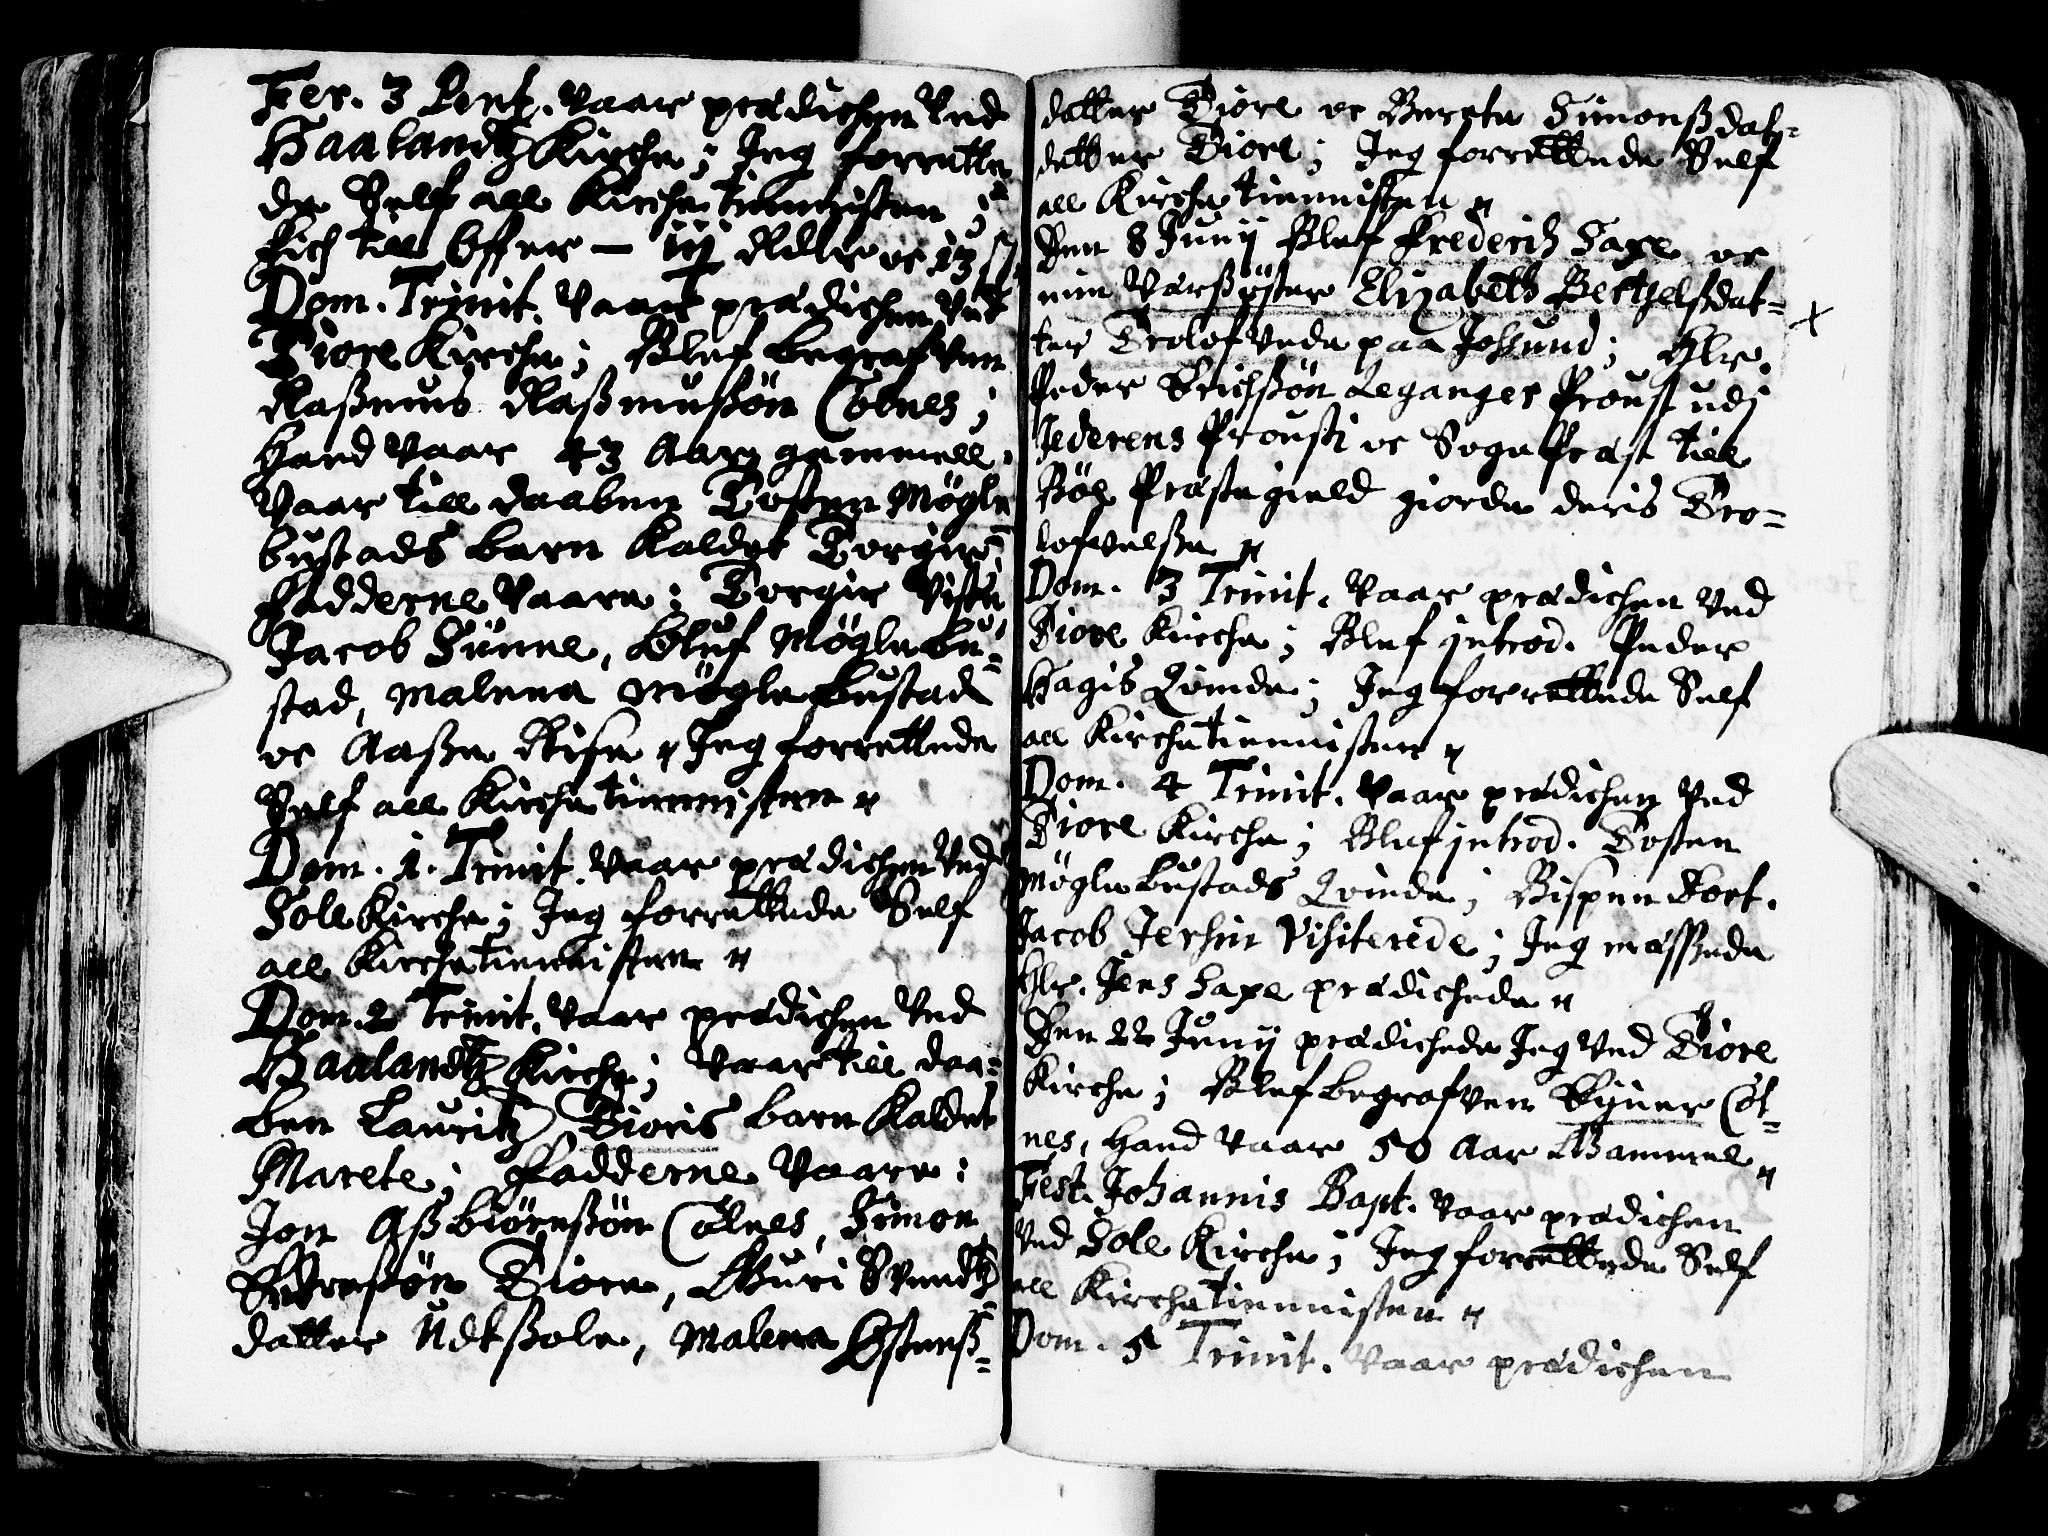 Fer. 3 Pent. Vaar prædichen Ved
Haalandtz Kirche; Jeg forrette
de Self all Kirchetiennisten;
Fich till Offer — iij Rdlr oc 13 s.
Dom. Trinit. Vaar prædichen Ved
Tiore Kirche; Blef begrafven
Rasmus Rasmußøn Colnes;
Hand Vaar 43 Aarg gammell.
Vaar till daaben Tosten Mögle
bustads barn Kaldet Torgier
Fadderne Vaare: Torgir Viste
Jacob Sünne, Oluf Möglebu-
stad, Malene Möglebustad
oc Aaße Risse " Jeg forrettede
Self all Kirchetiennisten "
Dom. 1. Trinit. Vaar prædichen Ved
Sole Kirche; Jeg forrettede Self
all Kirchetiennisten "
Dom. 2 Trinit. Vaar prædichen Ved
Haalandtz Kirche; Vaar till daa-
ben Lauritz Tioris barn Kaldet
Marete; Fadderne Vaare:
Jon Aßbiörnßön Colnes, Simon
Tiore, Guri Svendtz
datter Udtßole, Malene Ostenß-
datter Tiore oc Berete Simonßdat-
datter Tiore; Jeg forrettede Self
all Kirchetiennisten "
Den 8 Junij Blef Frederich Saxe oc
min Værsöster Elizabeth Berthelsdat-
ter Trolofvede paa Joßund; Hr.
Peder Erichßön Leganger Proust udj
Jederens Prousti oc Sogneprest till
Böe Præstegield giorde deris Tro-
lofvelße "
Dom. 3 Trinit. Vaar prædichen Ved
Tiore Kirche; Blef introd. Peder
Hagis Qvinde; Jeg forrettede Self
all Kirchetiennisten "
Dom. 4 Trinit. Vaar prædichen Ved
Tiore Kirche; Blef introd. Tosten
Möglebustads Qvinde; Bispen Doct.
Jacob Jersin Visiterede; Jeg meßßede
Hr. Jens Saxe prædichede "
Den 22 Junij prædichede Jeg Ved Tiore
Kirche; Blef begrafven Ejner Col-
nes, Hand Vaar 50 Aar Gammel "
Fest. Johannis Bapt. Vaar prædichen
Ved Sole Kirche; Jeg forrettede Self
all Kirchetiennisten "
Dom. 5 Trinit. Vaar prædichen